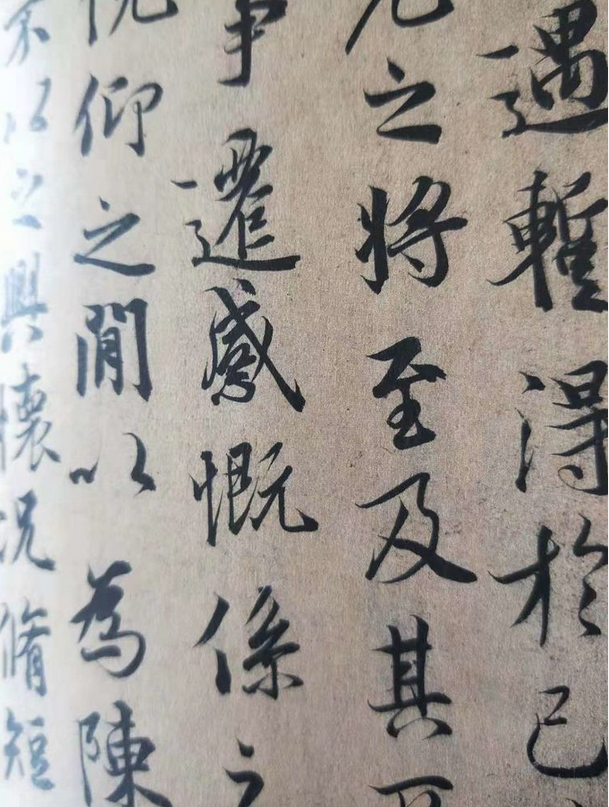 遇暫得於己
之将至及其
事遷感慨係之
俛仰之閒以為陳
不以之興懷况脩短